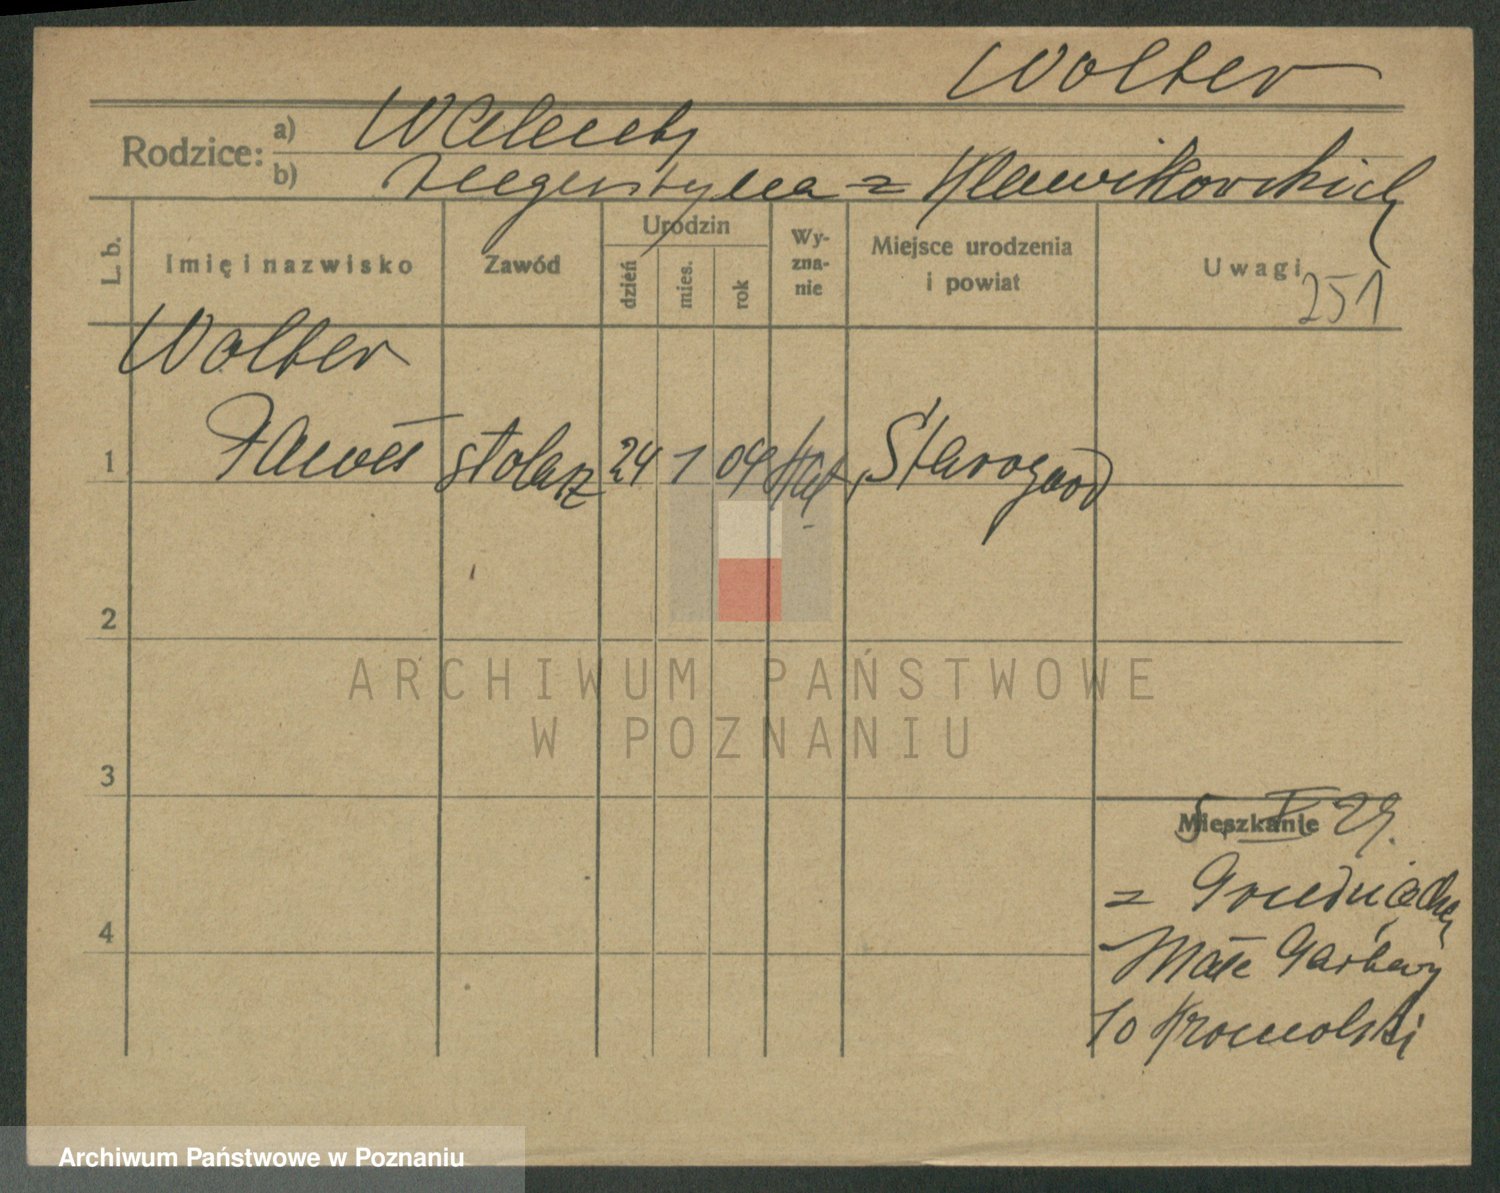 Wolter
Rodzice: a) Walenty
b) Augustyna z Klawikowskich
L. b. Imię i nazwisko Zawód Urodzin dzień mies. rok Wyzna-nie Miejsce urodzenia i powiat Uwagi
251
Wolter
1 Paweł stolarz 24 1 04 kat. Starogard
2
ARCHIWUM PAŃSTWOWE
W POZNANIU
3
Mieszkanie
5. V 29.
z Grudziądza
4
Małe Garbary
10 Kromolski
Archiwum Państwowe w Poznaniu